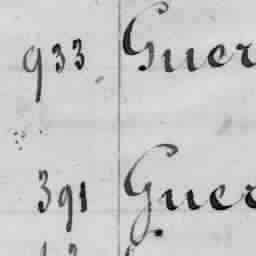 933 Guer
391 Guer